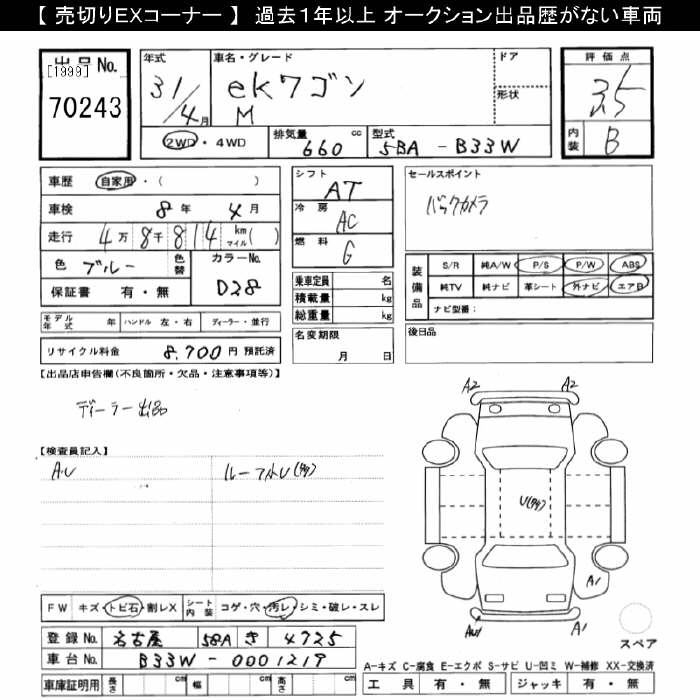 【 売切りEXコーナー 】 過去1年以上 オークション出品歴がない車両
出品No.
[1999]
70243
年式
31/4月
車名・グレード
ekワゴン
M
ドア
形状
評価点
3.5
内装
B
2WD・4WD
排気量 cc
660
型式
5BA - B33W
車歴 自家用・( )
車検 8年 4月
走行 4万8千814 km マイル( )
色 ブルー 色替
カラーNo.
D28
保証書 有・無
シフト
AT
冷房
AC
燃料
G
乗車定員 名
積載量 kg
総重量 kg
セールスポイント
バックカメラ
装備品
S/R 純A/W P/S P/W ABS
純TV 純ナビ 革シート 外ナビ エアB
ナビ型番:
モデル年式 年 ハンドル 左・右 ディーラー・並行
リサイクル料金 8,700 円 預託済
名変期限
月 日
後日品
【出品店申告欄(不良箇所・欠品・注意事項等)】
ディーラー出品
【検査員記入】
AU
A2 A2
A1
A1
FW キズ・トビ石・割レX
シート内装 コゲ・穴・汚レ・シミ・破レ・スレ
登録No. 名古屋 58A き 4725
車台No. B33W-0001219
車庫証明用 長さ cm 幅 cm 高さ cm
スペア
A-キズ C-腐食 E-エクボ S-サビ U-凹ミ W-補修 XX-交換済
工具 有・無 ジャッキ 有・無